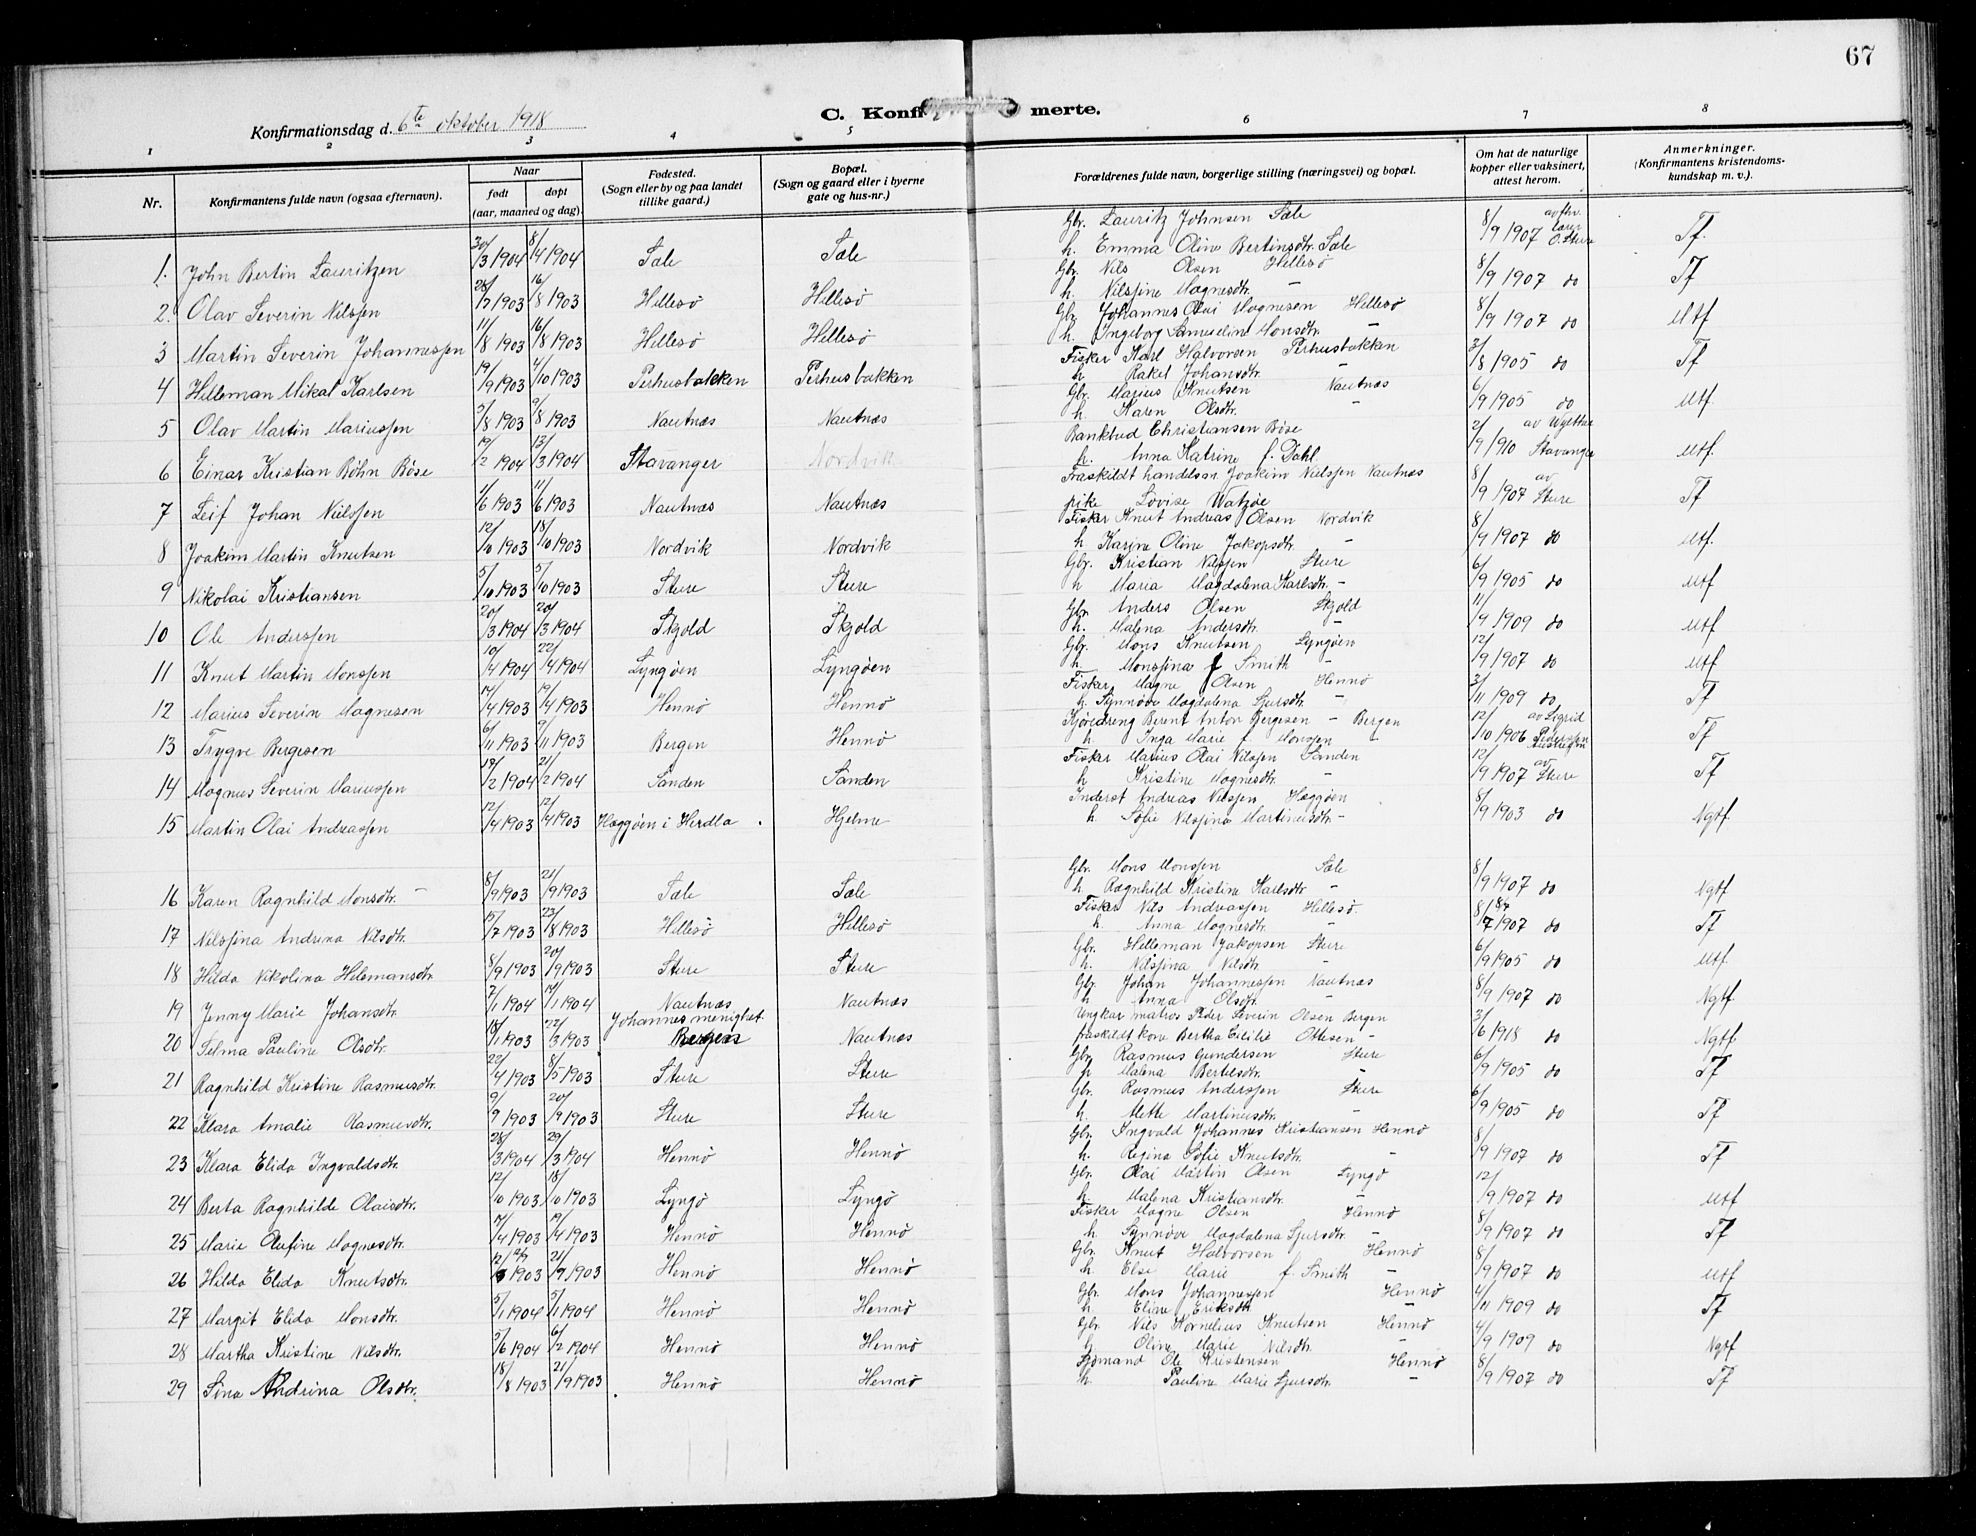 67
C. Konfi merte.
Konfirmationsdag d. 6te oktober 1918
1 2 3 4 5 6 7 8
Nr. Konfirmantens fulde navn (ogsaa efternavn). Naar født døpt (aar, maaned og dag) Fødested. (Sogn eller by og paa landet tillike gaard.) Bopæl. (Sogn og gaard eller i byerne gate og hus-nr.) Forældrenes fulde navn, borgerlige stilling (næringsvei) og bopæl. Om hat de naturlige kopper eller vaksinert, attest herom. Anmerkninger. (Konfirmantens kristendoms-kundskap m. v.).
1. John Bertin Lauritzen 30/3 1904 8/4 1904 Sæle Sæle Gbr. Lauritz Johnsen Sæle 8/9 1907 av fhv. lærer O. Sture Tf.
h. Emma Olina Bertinsdtr. Sæle
2. Olav Severin Nilssen 28/7 1903 16/8 1903 Hillesø Hillesø Gbr. Nils Olsen Hillesø 8/9 1907 do Tf
h. Nilssine Magnesdtr. –
3 Martin Severin Johannessen 11/8 1903 16/8 1903 Hillesø Hillesø Gbr. Johannes Olai Magnesen Hillesø 8/9 1907 do Mtf
h. Ingeborg Samueline Monsdtr. –
4 Hilleman Mikal Karlsen 19/9 1903 4/10 1903 Perhusbakken Perhusbakken Fisker Karl Halvorsen Perhusbakken 3/8 1905 do Tf
h Rakel Johansdtr. –
5 Olav Martin Mariussen 3/8 1903 9/8 1903 Nautnæs Nautnæs Gbr. Marius Knutsen Nautnæs 6/9 1905 do Mtf.
h. Karen Olsdtr. –
6 Einar Kristian Bøhn Bøse 19/2 1904 13/3 1904 Stavanger Nordvik Bankbud Christiansen Bøse 2/9 1910 av Stavanger Mtf.
h. Anna Katrine f. Dahl.
7 Leif Johan Nielssen 11/6 1903 11/6 1903 Nautnæs Nautnæs Fraskildt handelsm Joakim Nielssen Nautnæs 8/9 1907 av Sture Tf
pike Lovise Watzøe
8 Joakim Martin Knutsen 12/10 1903 18/10 1903 Nordvik Nordvik Fisker Knut Andreas Olsen Nordvik 8/9 1907 do Mtf.
h Karine Oline Jakopsdtr. –
9 Nikolai Kristiansen 5/10 1903 5/10 1903 Sture Sture Gbr. Kristian Nilssen Sture 6/9 1905 do Mtf
h Maria Magdalena Karlsdtr. –
10 Ole Anderssen 20/3 1904 20/3 1904 Skjold Skjold Gbr. Anders Olsen Skjold 11/9 1909 do Mtf
h. Malena Andersdtr. –
11 Knut Martin Monssen 10/4 1904 22/4 1904 Lyngøen Lyngøen Gbr. Mons Knutsen Lyngøen 12/9 1907 do Mtf
h. Monssina f Smith –
12 Marius Severin Magnesen 14/4 1903 19/4 1903 Hennø Hennø Fisker Magne Olsen Hennø 3/11 1909 do Tf
h. Synnøve Magdalena Sjursdtr. –
13 Trygve Bergesen 6/11 1903 9/11 1903 Bergen Hennø Kjøredreng Berent Anton Bergesen – Bergen 12/10 1906 av Sigrid Pederssen Tf
h. Inga Marie f Monssen –
14 Magnus Severin Mariussen 19/2 1904 21/2 1904 Sanden Sanden Fisker Marius Olai Nilssen Sanden 12/9 1907 av Sture Tf
h Kristine Magnesdtr. –
15 Martin Olai Andreassen 12/4 1903 12/4 1903 Hæggøen i Herdla Hjelme Inderst Andreas Nilssen Hæggøen 8/9 1903 do Ngtf.
h. Sofie Nilssina Martinusdtr. –
16 Karen Ragnhild Monsdtr. – 8/9 1903 21/9 1903 Sæle Sæle Gbr. Mons Monssen Sæle 8/9 1907 do Ngtf
h Ragnhild Kristine Karlsdtr –
17 Nilssina Andrina Nilsdtr. 15/7 1903 23/8 1903 Hillesø Hillesø Fisker Nils Andreassen Hillesø. 8/7 1907 do Tf
h. Anna Magnesdtr. –
18 Hilda Nikolina Hilemansdtr. 8/9 1903 20/9 1903 Sture Sture Gbr. Hilleman Jakopsen Sture 6/9 1905 do Mtf.
h. Nilssina Nilsdtr. –
19 Jenny Marie Johansdtr. 7/1 1904 14/1 1904 Nautnæs Nautnæs Gbr. Johan Johannessen Nautnæs 8/9 1907 do Ngtf.
h Anna Olsdtr. –
20 Selma Pauline Olsdtr. 18/1 1903 22/3 1903 Johannes menighet Bergen Nautnæs Ungkar matros Peder Severin Olsen Bergen 3/6 1918 do Ngtf.
fraskildt kone Bertha Cicilie Ottesen –
21 Ragnhild Kristine Rasmusdtr. 22/4 1903 8/5 1903 Sture Sture Gbr. Rasmus Gundersen Sture 6/9 1905 do Tf
h Malena Bertelsdtr. –
22 Klara Amalie Rasmusdtr. 9/9 1903 20/9 1903 Sture Sture Gbr. Rasmus Anderssen Sture 6/9 1905 do Tf
h. Mette Martinusdtr. –
23 Klara Elida Ingvaldsdtr. 28/3 1904 29/3 1904 Hennø Hennø Gbr. Ingvald Johannes Kristiansen Hennø 8/9 1907 do Tf
h. Regina Sofie Knutsdtr. –
24 Berta Ragnhilde Olaisdtr. 12/10 1903 18/10 1903 Lyngø Lyngø Gbr. Olai Martin Olsen Lyngø 12/9 1907 do Mtf
h. Malena Kristiansdtr. –
25 Marie Rufine Magnesdtr. 14/4 1903 19/4 1903 Hennø Hennø Fisker Magne Olsen Hennø 8/9 1907 do Tf
h. Synnøve Magdalena Sjursdtr. –
26 Hilda Elida Knutsdtr. 1903 21/9 1903 Hennø Hennø Gbr. Knut Halvorsen Hennø 8/9 1907 do Mtf
h. Else Marie f. Smith –
27 Margit Elida Monsdtr. 5/1 1904 5/1 1904 Hennø Hennø Gbr. Mons Johannessen Hennø 4/11 1909 do Tf
h. Eline Eriksdtr –
28 Martha Kristine Nilsdtr. 5/6 1904 6/2 1904 Hennø Hennø Gbr. Nils Kornelius Knutsen Hennø 4/9 1909 do Ngtf
h Oline Marie Nilsdtr. –
29 Sina Andrina Olsdtr. 18/8 1903 21/9 1903 Hennø Hennø Sjømand Ole Kristensen Hennø 8/9 1907 do Tf
h. Pauline Marie Sjursdtr. –